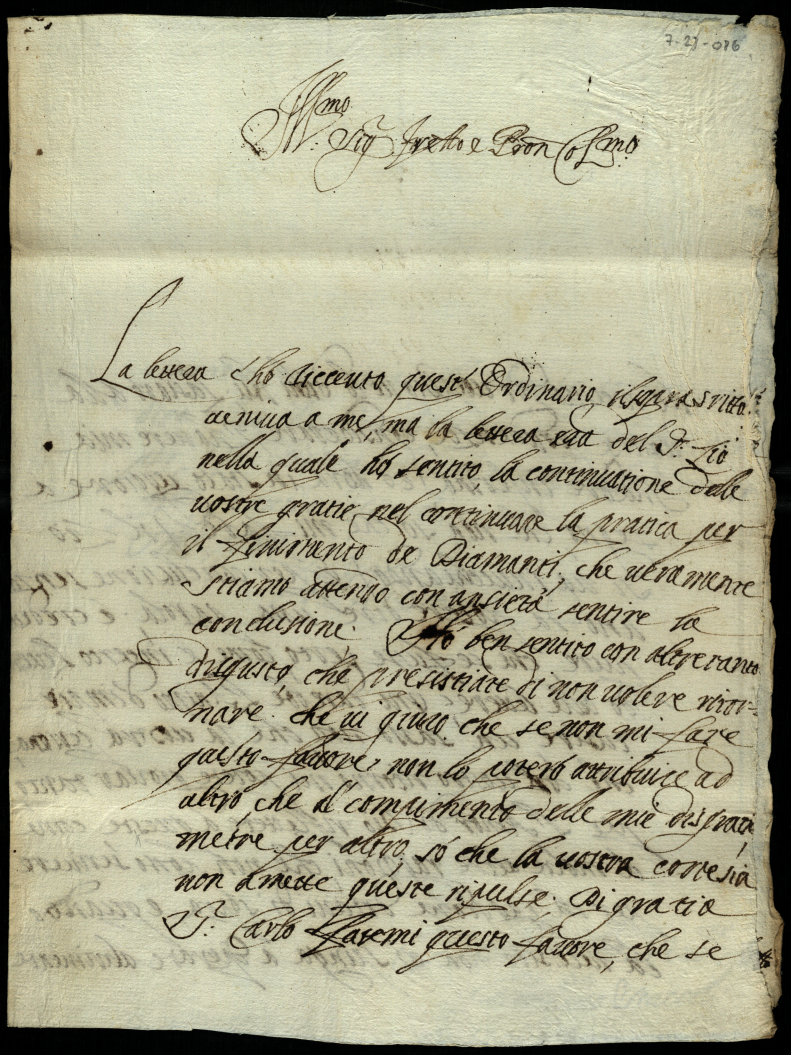 7-23-076
Ill.mo Sig.
La lettera c'hò riceuto quest'Ordinario
ueniua a me, ma la lettera era del S.r
nella quale hò sentito, la continuatione delle
uostre gratie nel continuare la pratica per
il de Diamanti, che ueramente
stiamo con ansietà sentire la
conclusione. Hò ben sentito con altretanto
disgusto che di non uolere ritor=
nare. che ui giuro che se non mi fate
questo fauore, non lo poterò attribuire ad
altro, che al compimento delle mie disgratie,
mentre per altro, sò che la uostra cortesia
non amette queste ripulse. Di gratia
S.r Carlo fatemi questo fauore, che se